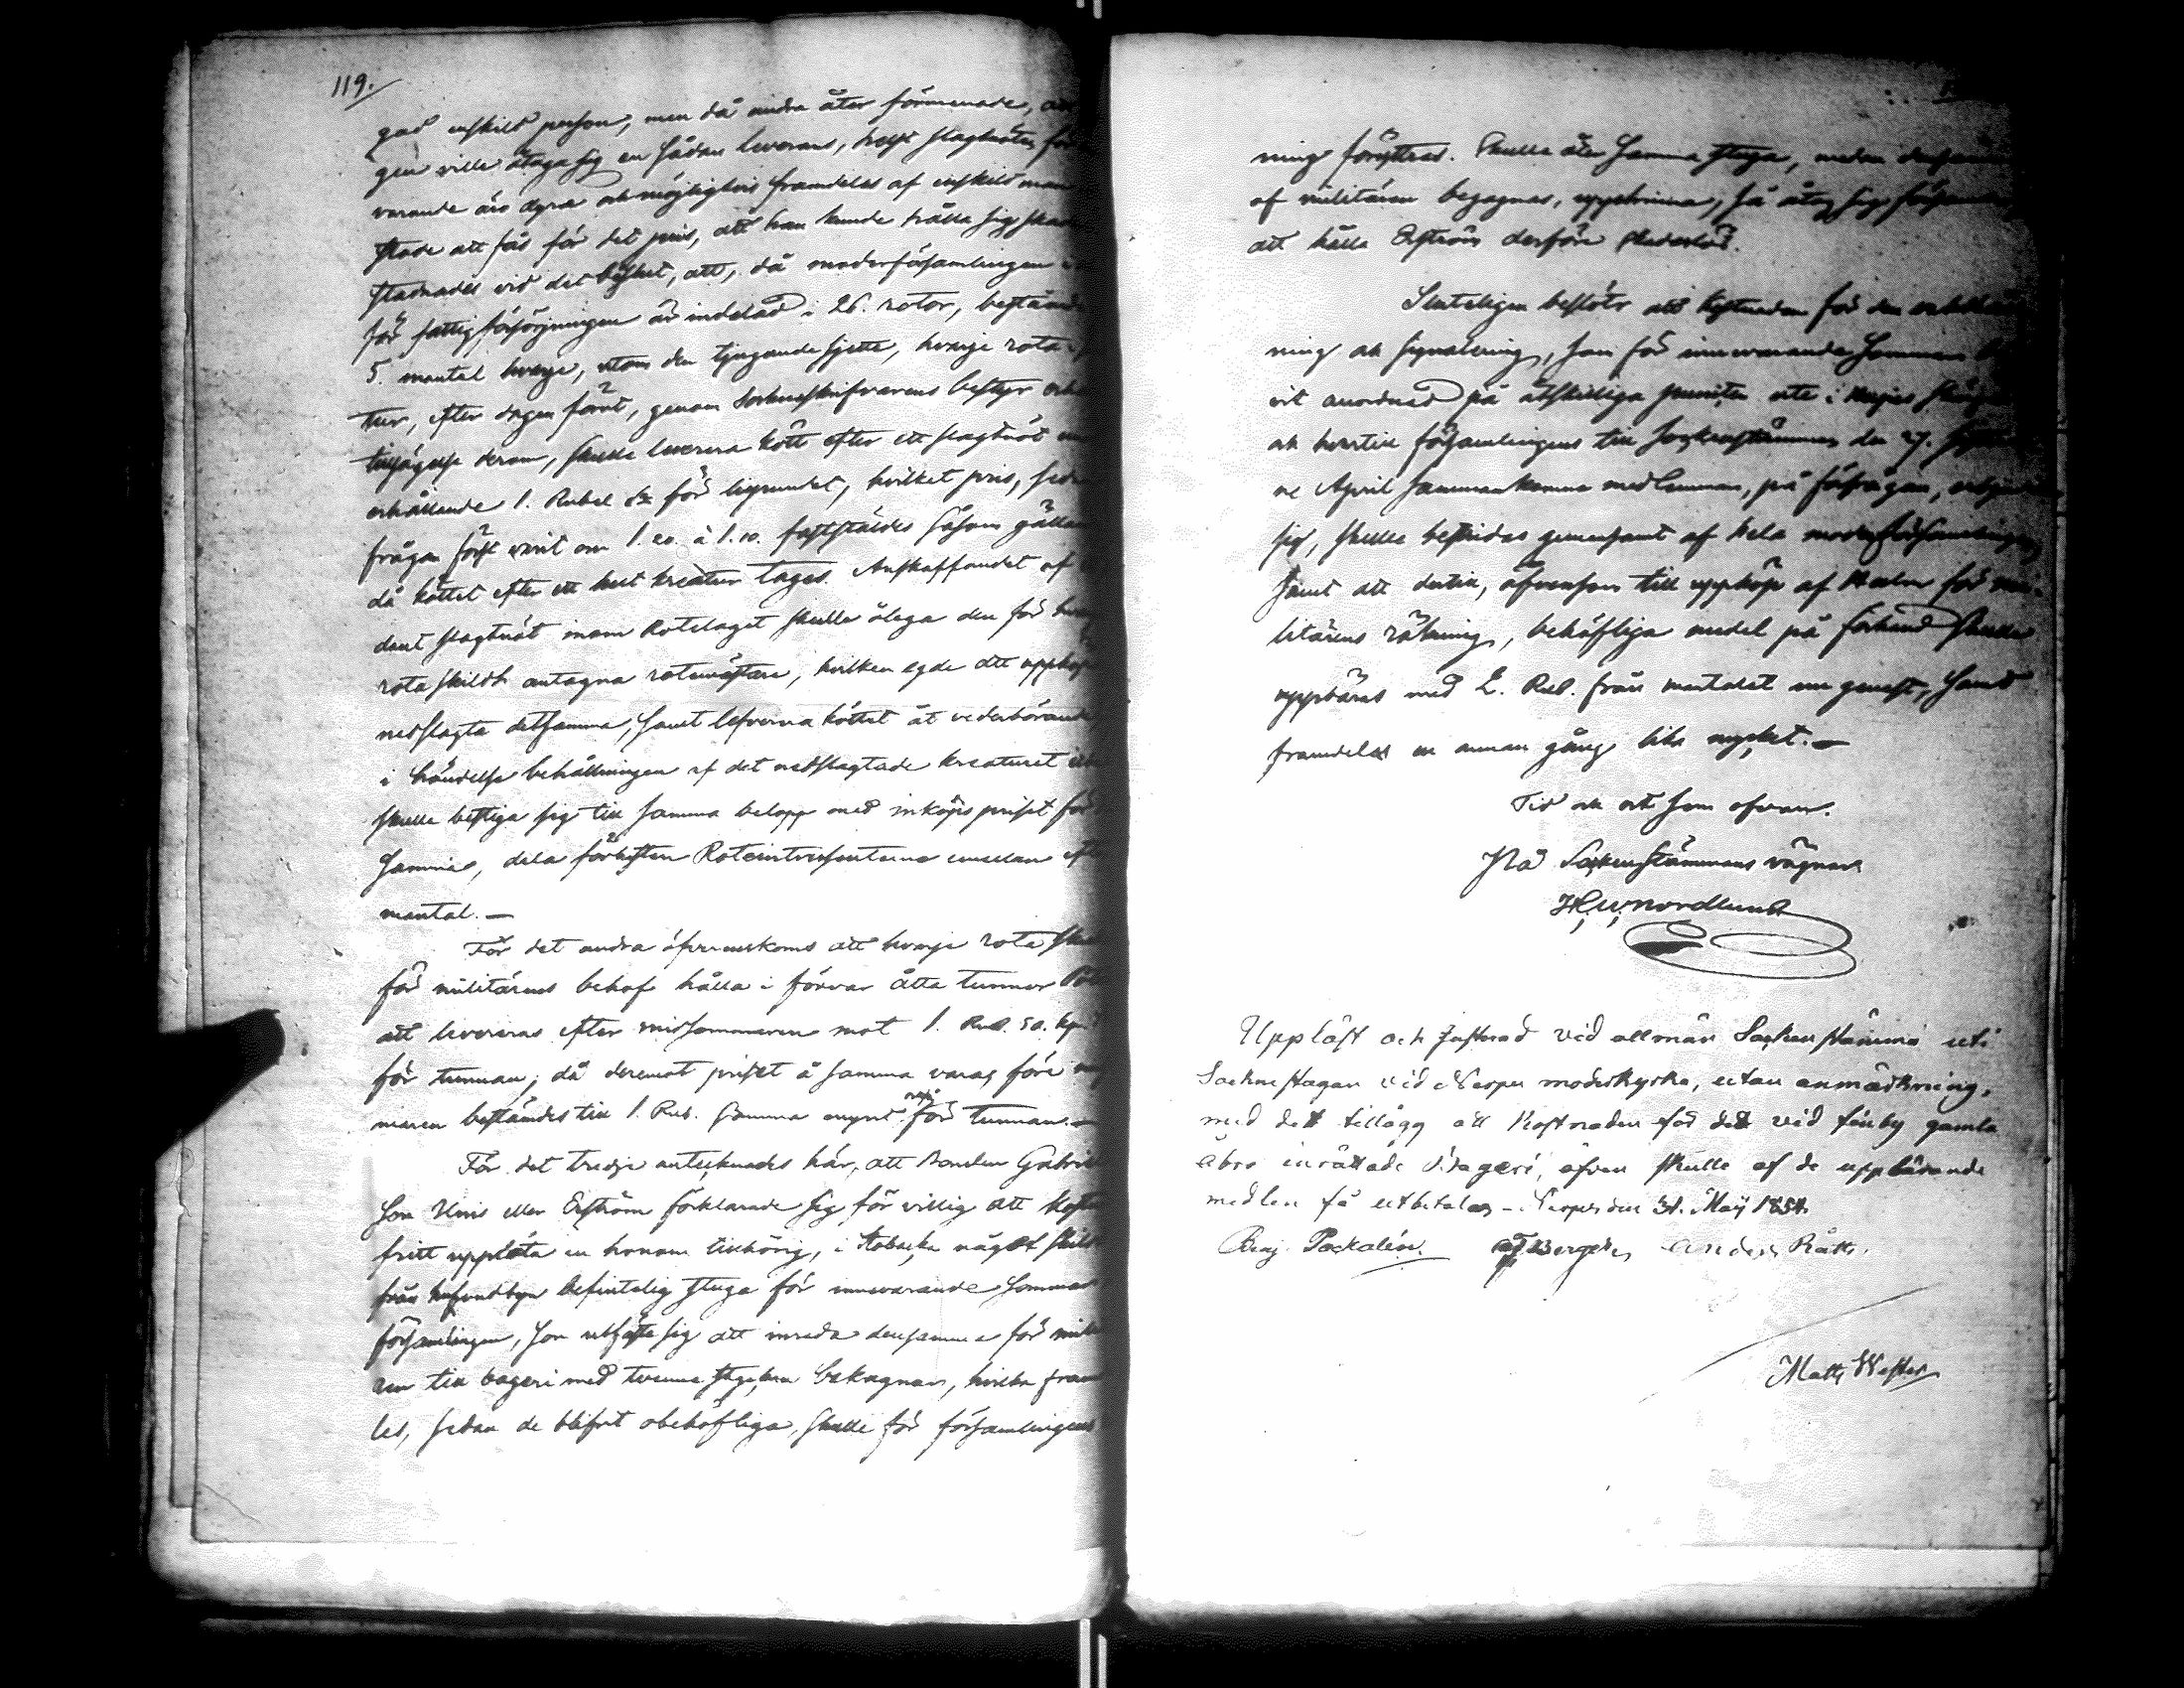 119.
gad enskild person, men då andra åter förmenade, att
gen ville åtaga sig en sådan leverans, helst slagtnöten för
varande äro dyra och möjligtvis framdeles af enskild man
stode att fås för det pris, att han kunde hålla sig skade
stadnades vid det beslut, att, då moderförsamlingen
för fattigförsörjningen är indelad i 26. rotor, bestående
5. mantal hvarje, utom den tjugondesjette, hvarje rota i
tur, efter dagen förut, genom Sockneskrifvarens bestyr
tillsägelse derom, skulle leverera kött efter ett slagtnöt
erhållande 1. Rubel Sr för lispundet, hvilket pris, sedan
frågan först varit om 1.20. à 1.10. fastställdes såsom gällan
då köttet efter ett helt kreatur tages. Anskaffandet af
dant slagtnöt inom Rotelaget skulle åligga den för hvarje
rota skildt antagna rotemästare, hvilken egde att uppköpa
nedslagta detsamma, samt lefverera köttet åt vederbörande
i händelse behållningen af det nedslagtade kreaturet
skulle bestiga sig till samma belopp med inköpspriset för
samma, dela förlusten Roteintressenterne emellan efter
mantal. —
För det andra öfverenskoms att hvarje rota skulle
för militärens behof hålla i förvar åtta tunnor
att levereras efter midsommaren mot 1. Rub. 50. kop.
för tunnan; då deremot priset å samma vara, före
maren bestämdes till 1. Rub. samma mynt för tunnan. —
För det tredje antecknades här, att bonden Gabriel
son Unis eller Erström förklarade sig för villig att kost
fritt upplåta en honom tillhörig, i backa något skild
från befintelig stuga för innevarande sommar
församlingen, som utfäste sig att inreda densamma för mili
ren till bageri med tvenne bakugnar, hvilka fram
les, sedan de blifvit obehöfliga, skulle för församlingens
ning föryttras. Skulle åter samma stuga, medan densamma
af militären begagnas, uppbrinna, så åtog sig församl
att hålla Erström derföre skadeslös.
Sluteligen beslöts att kostnaden för den
ning och signalering, som för innevarande sommar
vit anordnad på åtskilliga punkter ute i skärg
och hvartill församlingens till Sockenstämman den 27.
ne April sammankomne medlemmar, på förfrågan,
sig, skulle bestridas gemensamt af hela moderförsamlingen,
samt att dertill, äfvensom till uppköp af Halm för mi-
litärens räkning, behöfliga medel på förhand skulle
uppbäras med 2. Rub. från mantalet nu genast, samt
framdeles en annan gång lika mycket. —
Tid och ort som ofvan.
På Sockenstämmans vägnar
H. W. Nordlund
Uppläst och Justerad vid allmän Sockenstämma uti
Socknestugan vid Nerpes moderkyrka, utan anmärkning,
med det tillägg att Kostnaden för det vid Finby gamla
åbro inrättade Bageri, äfven skulle af de uppbärande
medlen få utbetalas — Nerpes den 31. Maij 1854.
Benj. Packalén. Bergelin Anders Rätts.
Matts Wester